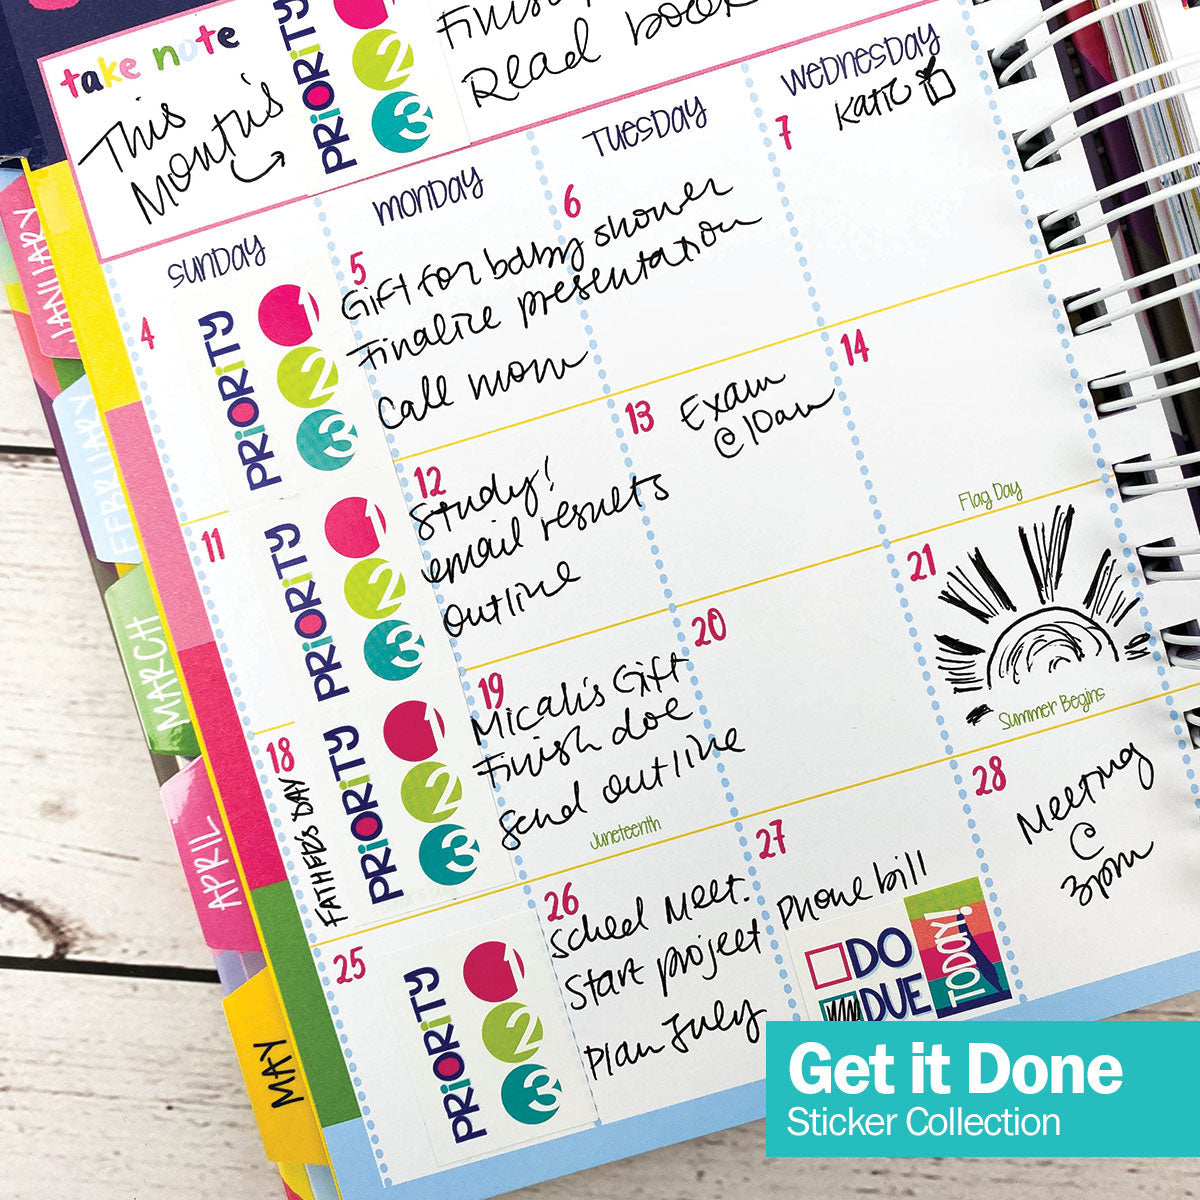 take note
This
Month's
PRiORiTY
1
2
3
Finish
Read book
SUNDAY
MONDAY
TUESDAY
WEDNESDAY
4
PRiORiTY
1
2
3
5
Gift for baby shower
Finalize presentation
Call mom
6
7
Katie
11
PRiORiTY
1
2
3
12
Study!
email results
outline
13
Exam
@ 10am
14
Flag Day
18
FATHER'S DAY
PRiORiTY
1
2
3
19
Micah's Gift
Finish doc
Send outline
Juneteenth
20
21
Summer Begins
25
PRiORiTY
1
2
3
26
Sched Meet.
Start project
Plan July
27
Phone bill
DO
DUE
TODAY!
28
Meeting
@
3pm
JANUARY
FEBRUARY
MARCH
APRIL
MAY
Get it Done
Sticker Collection